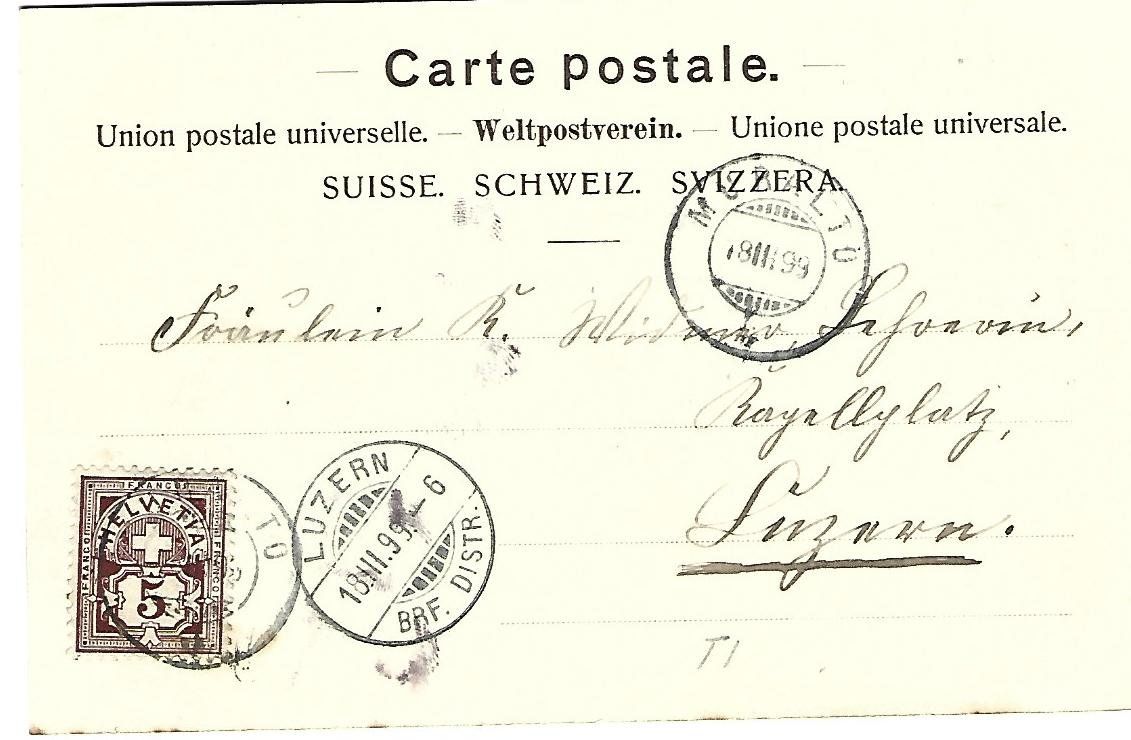 Carte postale.
Union postale universelle. — Weltpostverein. — Unione postale universale.
SUISSE. SCHWEIZ. SVIZZERA.
MURALTO
18 III 99
Fräulein K. Widmer, Lehrerin,
Kapellplatz,
Luzern.
FRANCO
FRANCO
FRANCO
HELVETIA
5
TO
LUZERN
18.III.99.– 6
BRF. DISTR.
TI